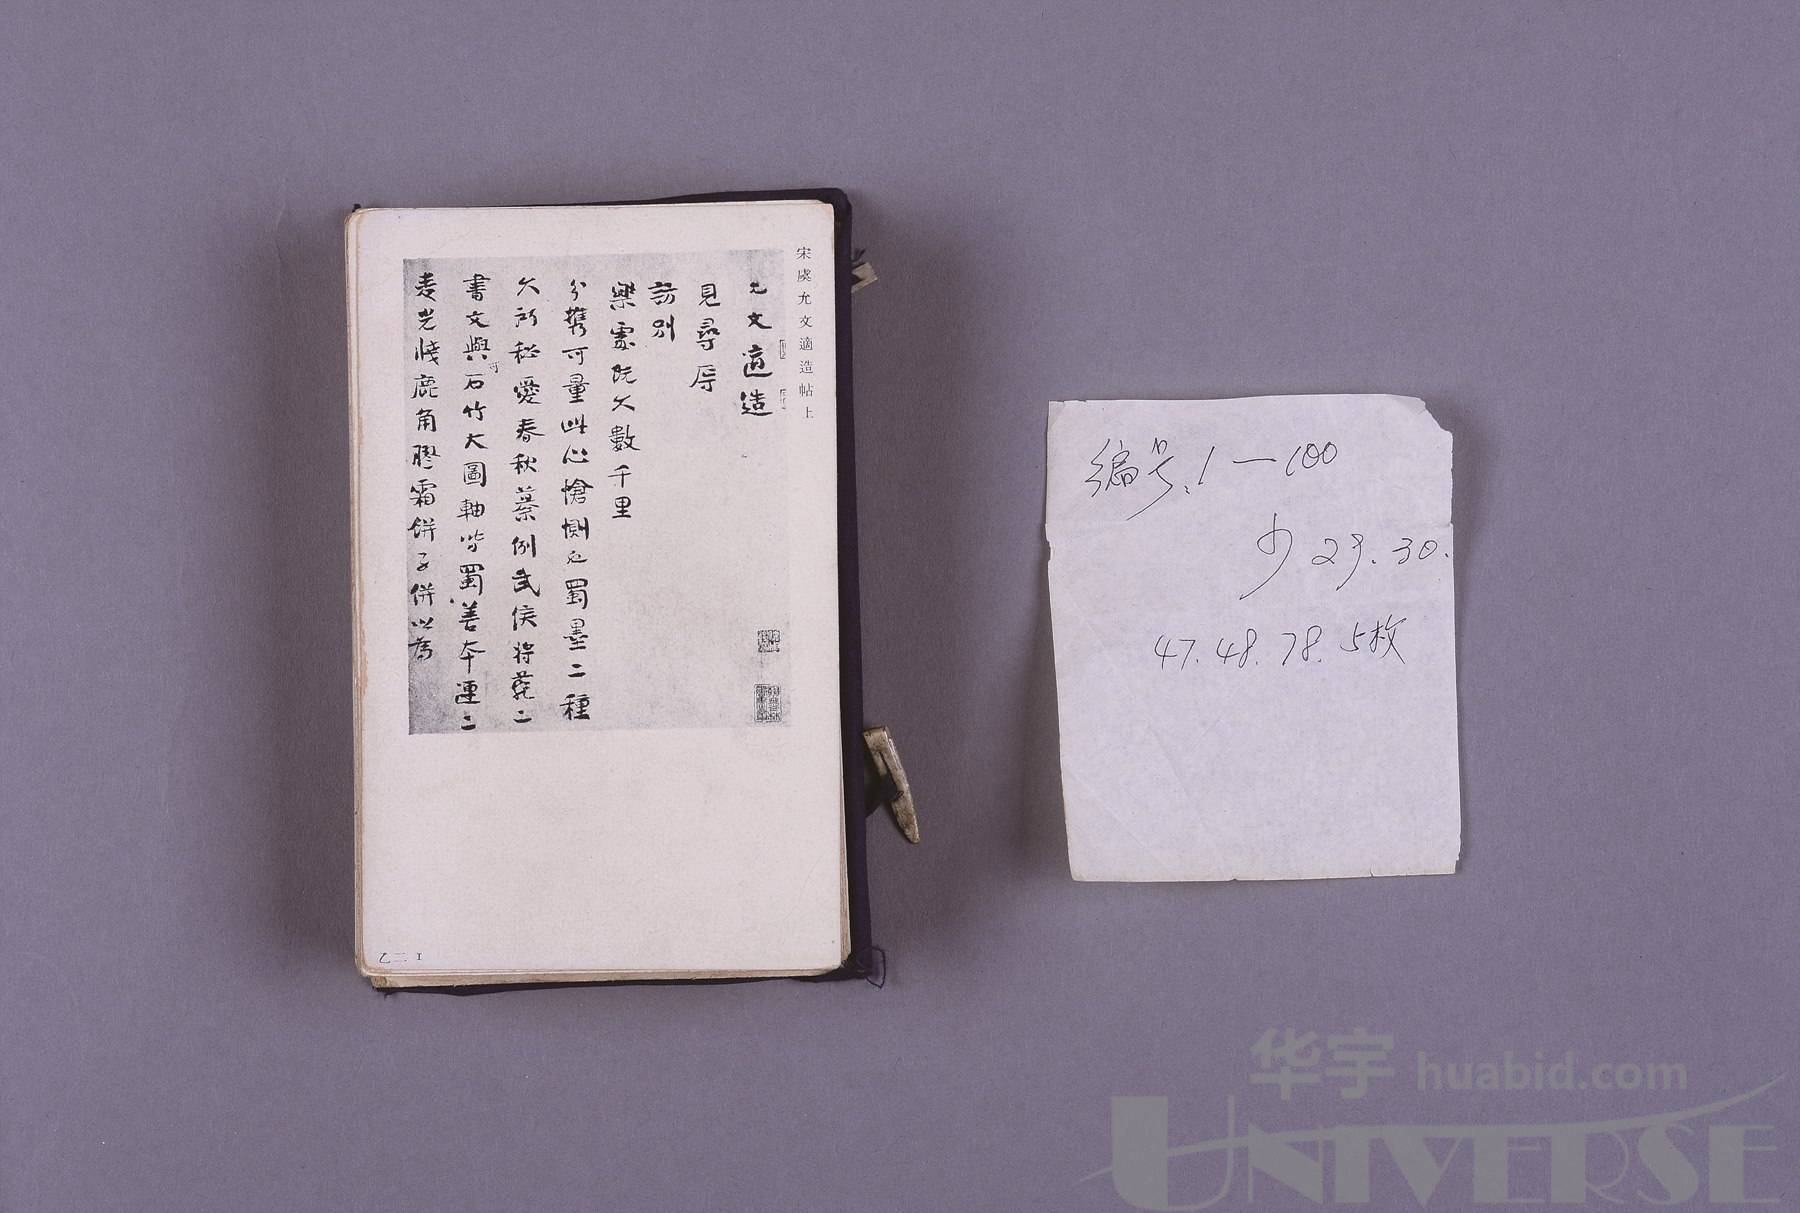 宋虞允文適造帖上
允文適造
見尋辱
訪別
樂處既久數千里
分攜可量此心愴惻也蜀墨二種
久所秘愛春秋蔡例武侯將苑二
書文與可石竹大圖軸皆蜀善本運二
麦光牋鹿角膠霜餅子併以為
乙二 1
编号.1—100
少 29.30.
47.48.78.5枚
华宇 huabid.com
UNIVERSE